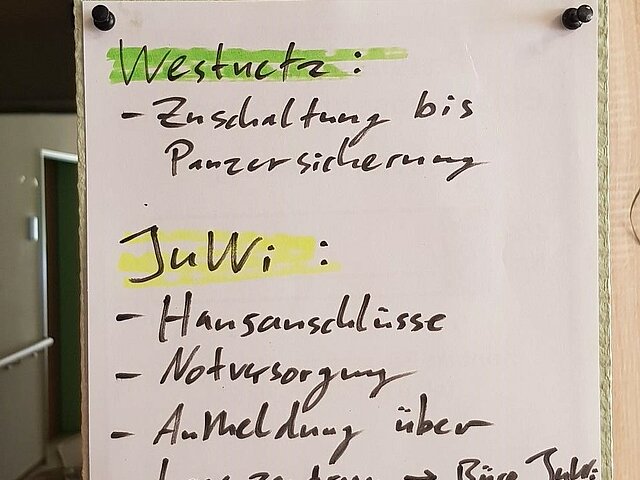 Westnetz:
- Zuschaltung bis
Panzersicherung
JuWi:
- Hausanschlüsse
- Notversorgung
- Anmeldung über
→ Büro JuWi